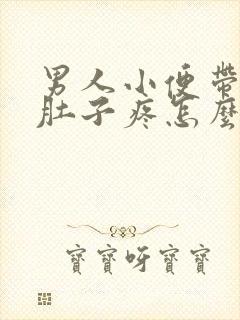 男人小便带
肚子疼怎麼
寶寶呀寶寶